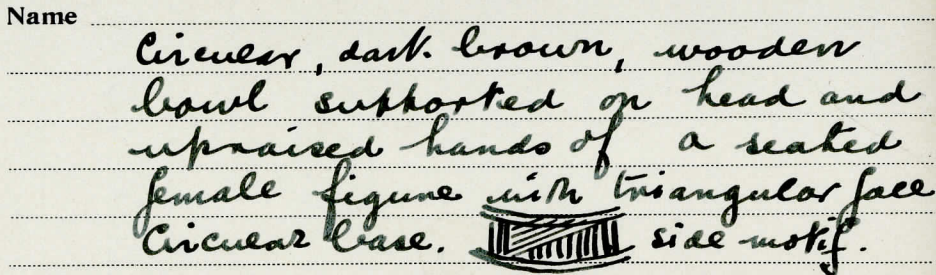 Name
Circular, dark brown, wooden
bowl supported on head and
upraised hands of a seated
female figure with triangular face
Circular base. side motif.